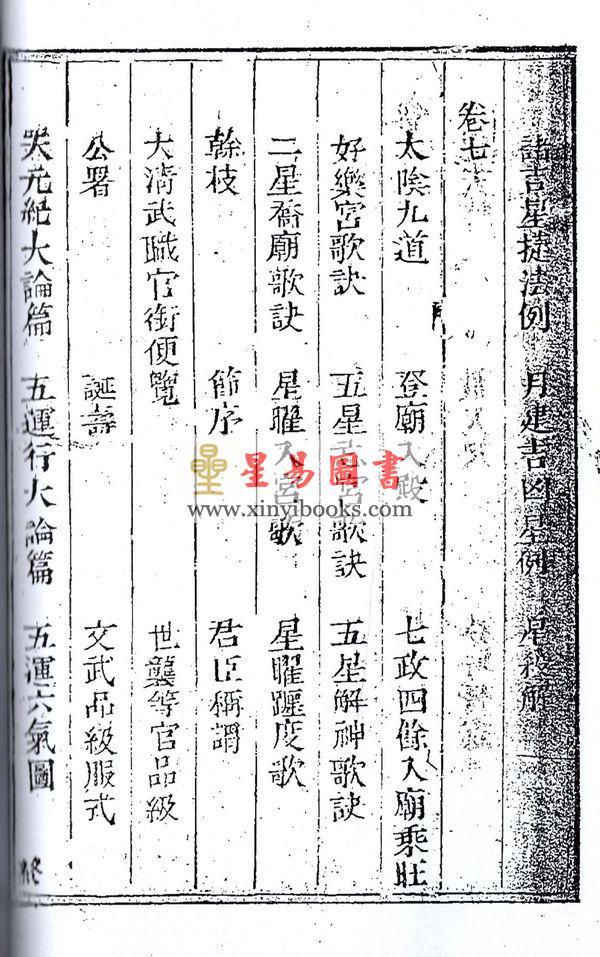 諸吉星捷法例　月建吉凶星例　星殺解
卷七
太陰九道　登廟入殿　七政四餘入廟乘旺
好樂宮歌訣　五星宮歌訣　五星解神歌訣
二星喬廟歌訣　星曜入宮歌　星曜躔度歌
幹枝　節序　君臣稱謂
大清武職官銜便覽　世襲等官品級
公署　誕壽　文武品級服式
天元紀大論篇　五運行大論篇　五運六氣圖
星易圖書
www.xinyibooks.com